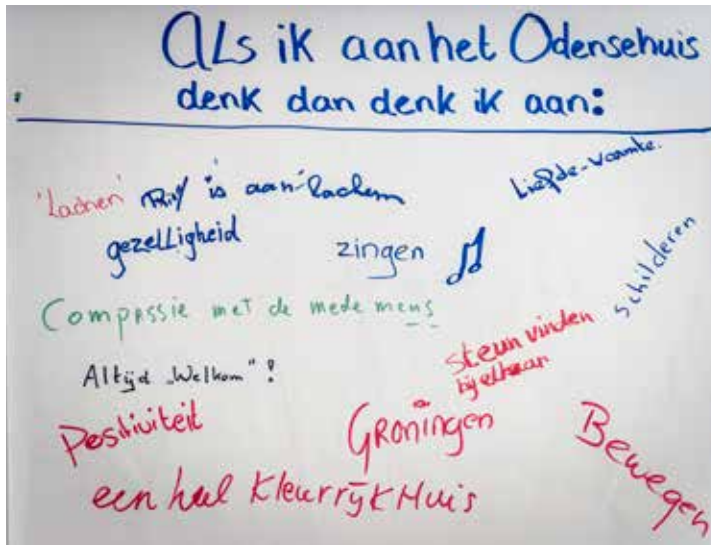 Als ik aan het Odensehuis
denk dan denk ik aan:
Liefde-warmte.
'Lachen' is aan
gezelligheid
zingen
Schilderen
Compassie met de mede mens
steun vinden
bij elkaar
Altijd „Welkom" !
Positiviteit
GRoningen
Bewegen
een heel KleurrijK Huis